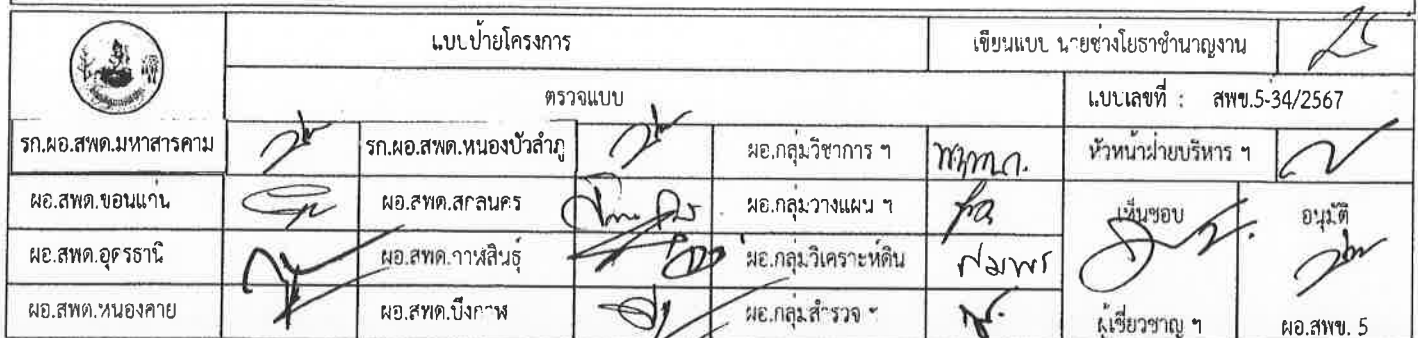 แบบป้ายโครงการ เขียนแบบ นายช่างโยธาชำนาญงาน
ตรวจแบบ แบบเลขที่ : สพข.5-34/2567
รก.ผอ.สพด.มหาสารคาม รก.ผอ.สพด.หนองบัวลำภู ผอ.กลุ่มวิชาการ ฯ หัวหน้าฝ่ายบริหาร ฯ
ผอ.สพด.ขอนแก่น ผอ.สพด.สกลนคร ผอ.กลุ่มวางแผน ฯ เห็นชอบ อนุมัติ
ผอ.สพด.อุดรธานี ผอ.สพด.กาฬสินธุ์ ผอ.กลุ่มวิเคราะห์ดิน
ผอ.สพด.หนองคาย ผอ.สพด.บึงกาฬ ผอ.กลุ่มสำรวจ ฯ ผู้เชี่ยวชาญ ฯ ผอ.สพข. 5